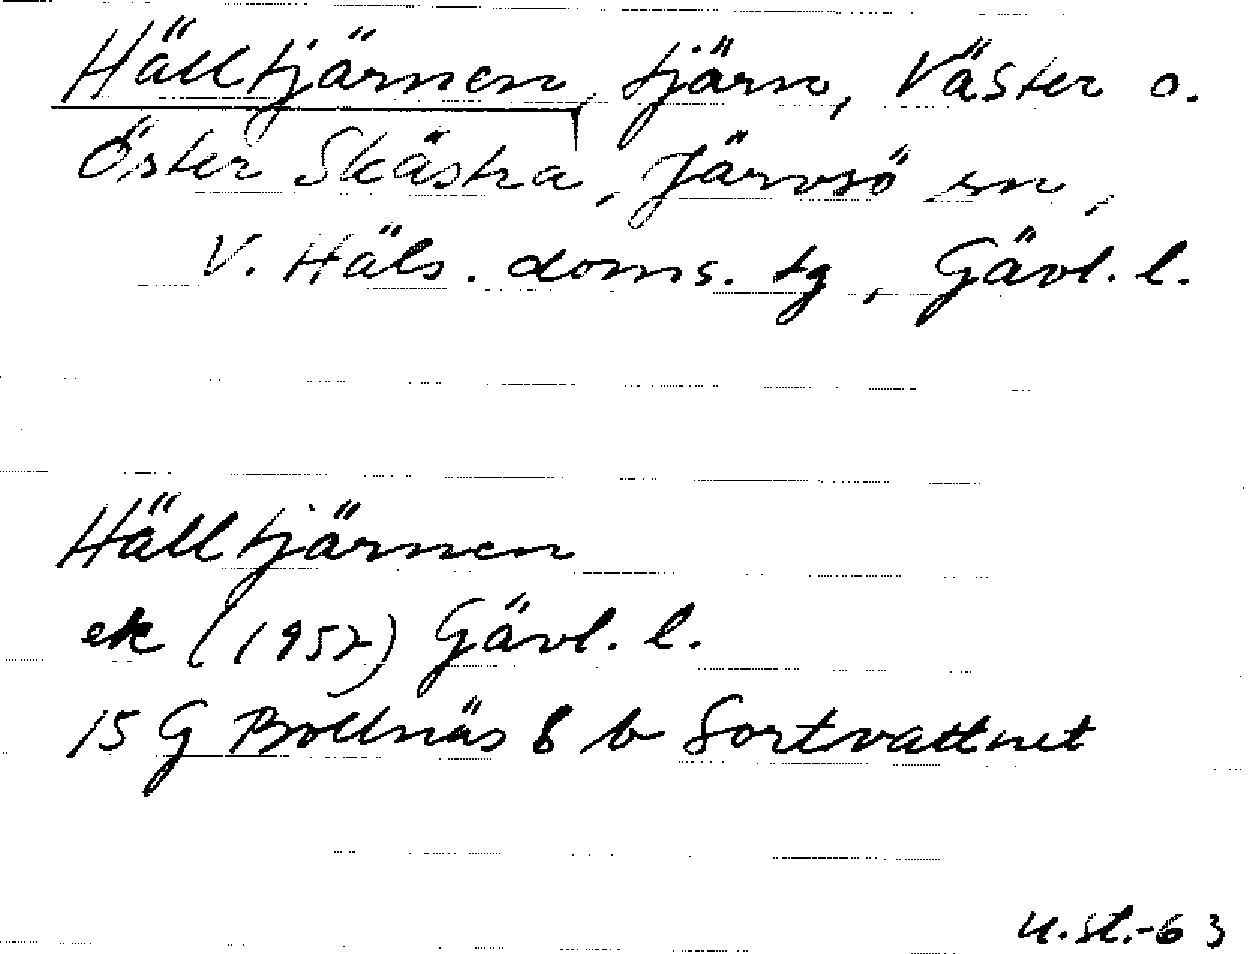 Hälltjärnen, tjärn, Väster o.
Öster Skästra, Järvsö sn,
V. Häls. doms. tg, Gävl. l.
Hälltjärnen
ek (1957) Gävl. l.
15 G Bollnäs 8 b Sortvattnet
U.St.-63